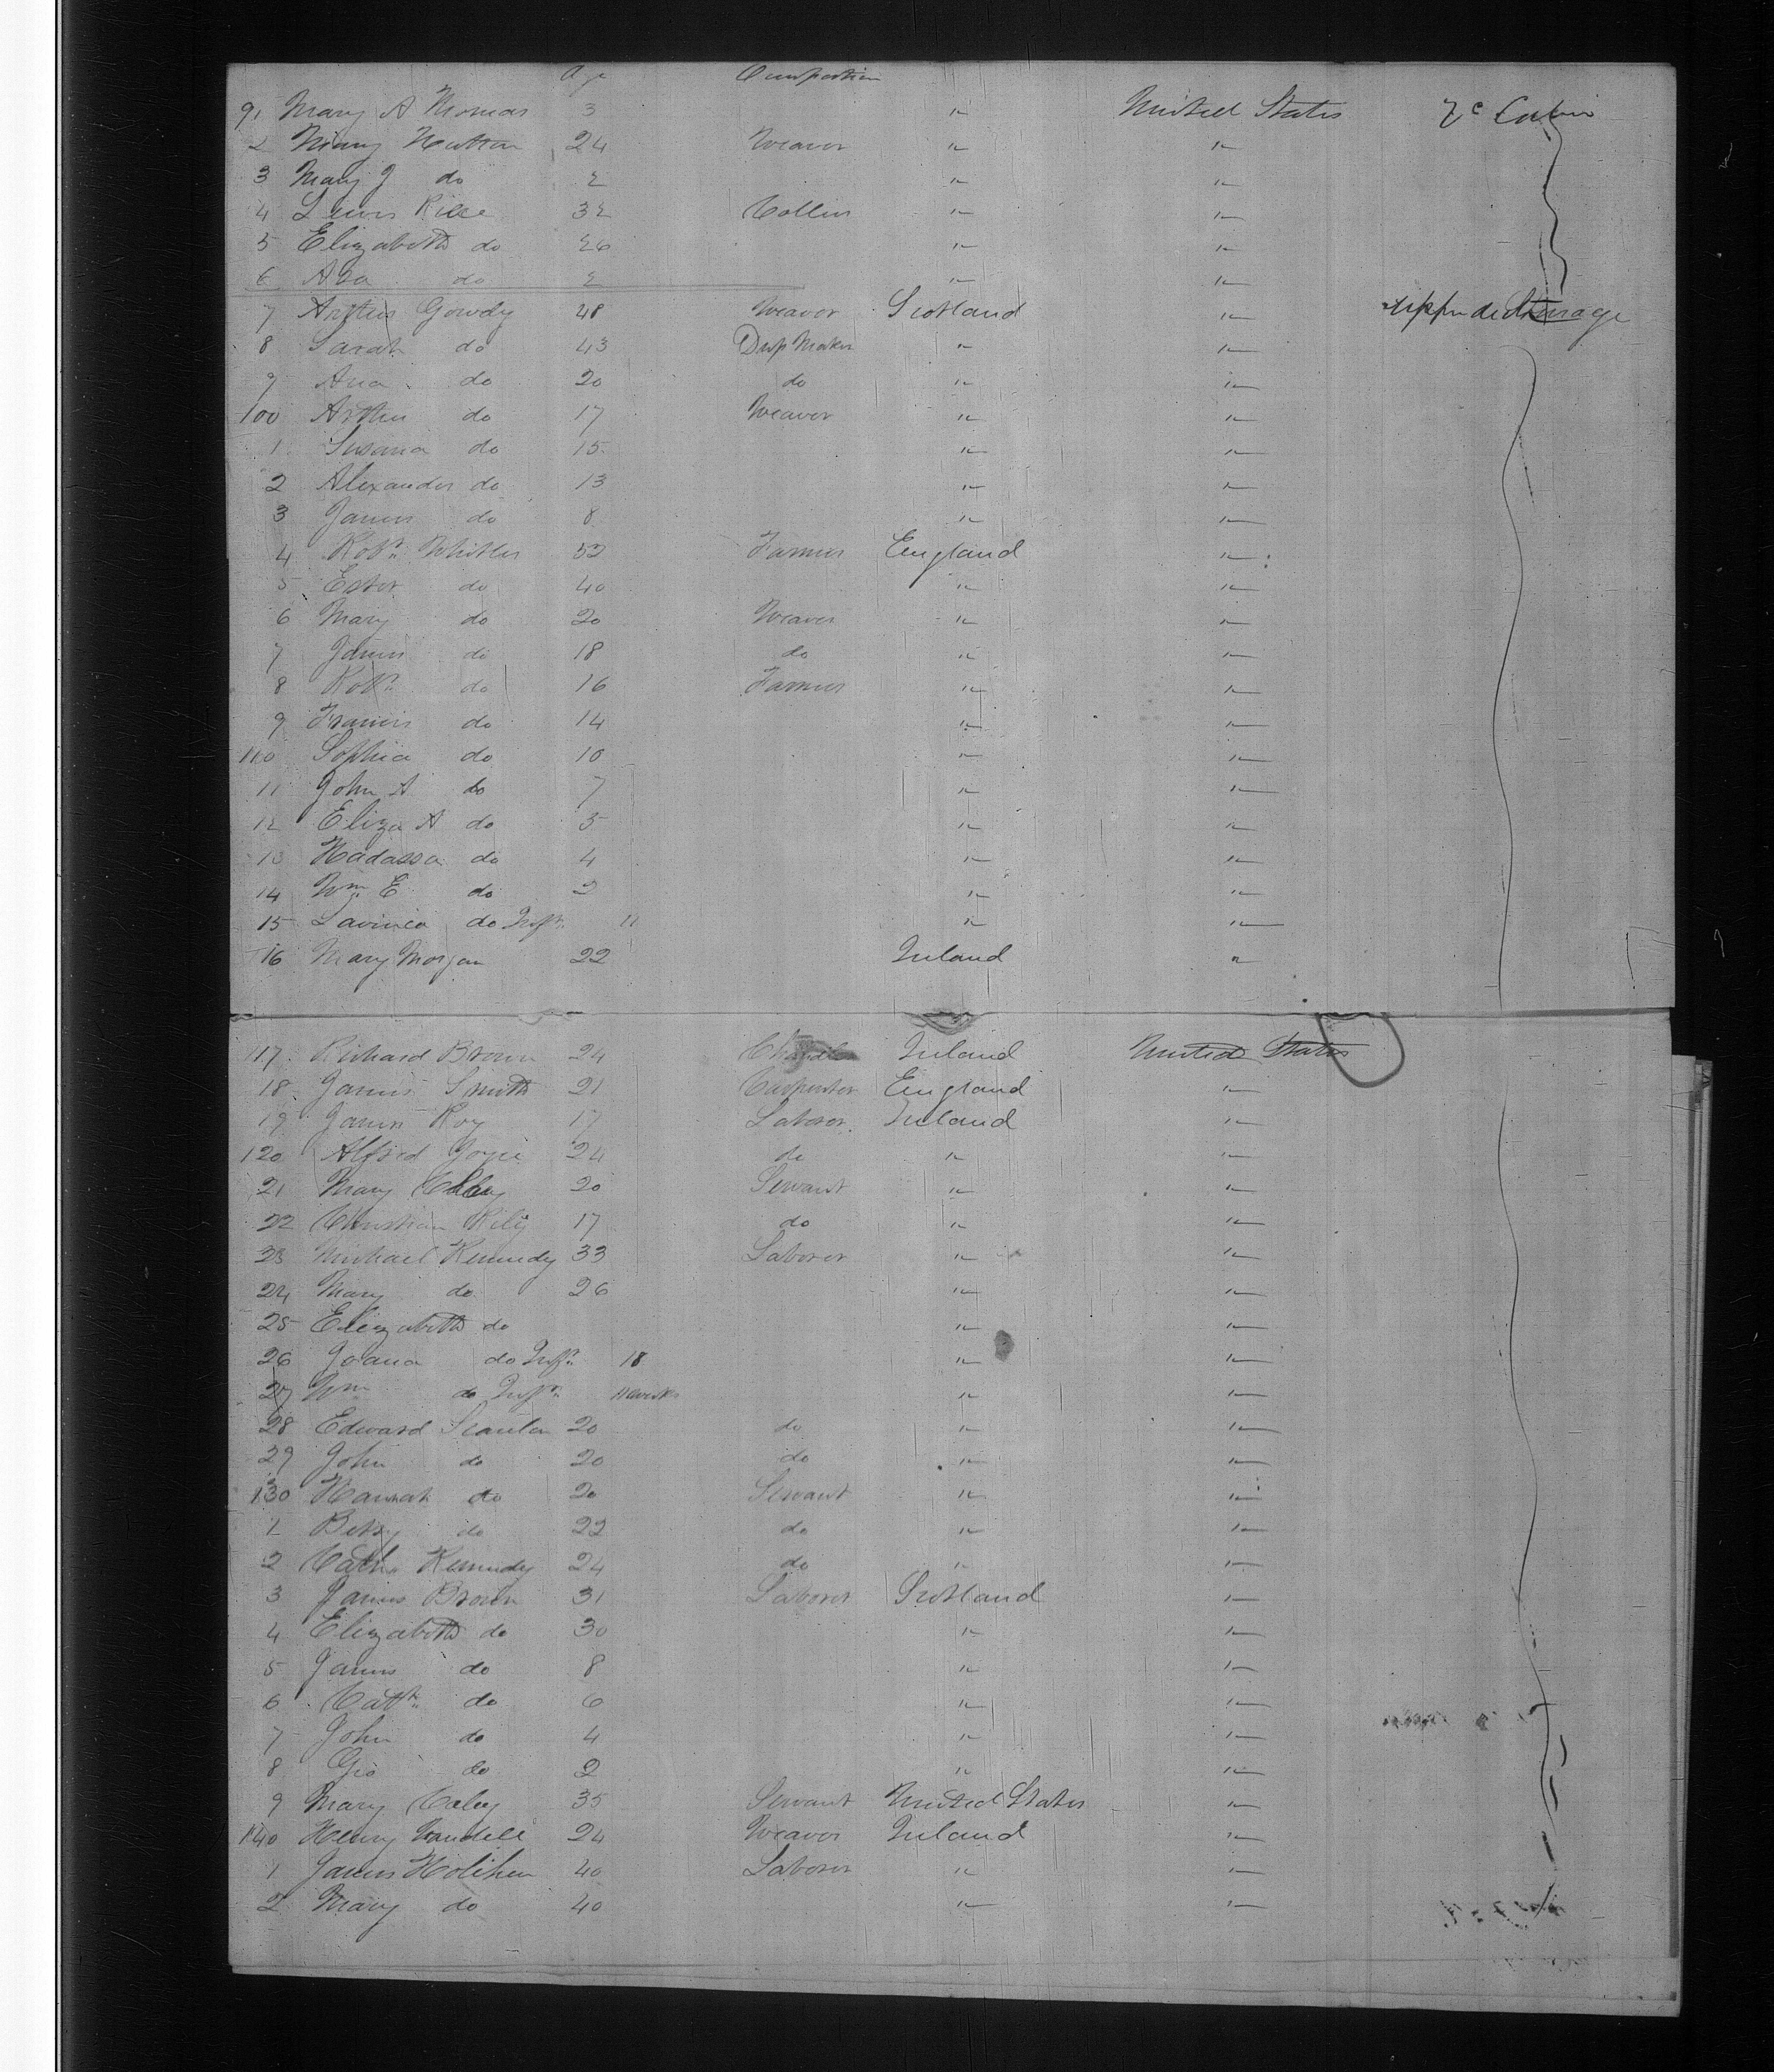 Age Occupation
91 Mary A Thomas 3 " United States 2c Cabin
2 Mary Hutton 24 Weaver " "
3 Mary J do 2 " "
4 Lewis Rice 32 Collier " "
5 Elizabeth do 26 " "
6 Ada do 2 " "
7 Arthur Gowdy 48 Weaver Scotland " upper deck Steerage
8 Sarah do 43 Drsp Maker " "
9 Ana do 20 do " "
100 Arthur do 17 Weaver " "
1 Susana do 15 " "
2 Alexander do 13 " "
3 James do 8 " "
4 Robt Whitler 52 Farmer England "
5 Ester do 40 " "
6 Mary do 20 Weaver " "
7 James do 18 do " "
8 Robt do 16 Farmer " "
9 Francis do 14 " "
110 Sophia do 10 " "
11 John A do 7 " "
12 Eliza A do 5 " "
13 Hadassa do 4 " "
14 Wm E do 2 " "
15 Lavinia do Inft 11 " "
16 Mary Morgan 22 Ireland "
117 Richard Brown 24 Ireland United States
18 James Smith 21 Carpenter England "
19 James Roy 17 Laborer Ireland "
120 Alfred Joyce 24 do " "
21 Mary 20 Servant " "
22 Christian Rily 17 do " "
23 Michael Kennedy 33 Laborer " "
24 Mary do 26 " "
25 Elizabeth do " "
26 Joana do Inft 18 " "
27 Wm do Inft " "
28 Edward Scanlan 20 do " "
29 John do 20 do " "
130 Hannah do 20 Servant " "
1 Betsy do 22 do " "
2 Cath Kennedy 24 do " "
3 James Brown 31 Laborer Scotland "
4 Elizabeth do 30 " "
5 James do 8 " "
6 Cath do 6 " "
7 John do 4 " "
8 Geo do 2 " "
9 Mary Caley 35 Servant United States "
140 Henry 24 Weaver Ireland "
1 James Holihen 40 Laborer " "
2 Mary do 40 " "